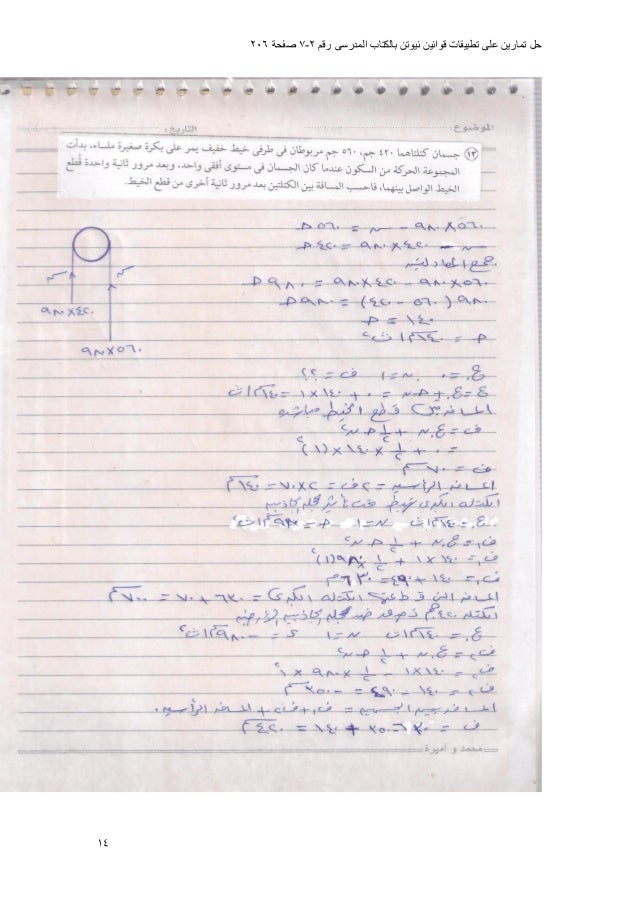 حل تمارين على تطبيقات قوانين نيوتن بالكتاب المدرسى رقم ٢-٧ صفحة ٢٠٦
الموضوع: التاريخ:
١٣ جسمان كتلتاهما ٤٢٠ جم، ٥٦٠ جم مربوطان فى طرفى خيط خفيف يمر على بكرة صغيرة ملساء، بدأت
المجموعة الحركة من السكون عندما كان الجسمان فى مستوى أفقى واحد، وبعد مرور ثانية واحدة قُطع
الخيط الواصل بينهما، فاحسب المسافة بين الكتلتين بعد مرور ثانية أخرى من قطع الخيط.
٥٦٠ × ٩٨٠ − س = ٥٦٠ حـ
س − ٤٢٠ × ٩٨٠ = ٤٢٠ حـ
بجمع المعادلتين
٥٦٠ × ٩٨٠ − ٤٢٠ × ٩٨٠ = ٩٨٠ حـ
٩٨٠ (٥٦٠ − ٤٢٠) = ٩٨٠ حـ
١٤٠ = حـ
حـ = ١٤٠ سم/ث٢
٤٢٠ × ٩٨٠
٥٦٠ × ٩٨٠
ع. = ٠ ن = ١ ف = ؟؟
ع = ع. + حـ ن = ٠ + ١٤٠ × ١ = ١٤٠ سم/ث
المسافة قطع الخيط مباشرة
ف = ع. ن + ١/٢ حـ ن٢
= ٠ + ١/٢ × ١٤٠ × (١)٢
ف = ٧٠ سم
المسافة الرأسية = ٢ ف = ٢ × ٧٠ = ١٤٠ سم
الكتلة الكبرى تهبط تحت تأثير عجلة الجاذبية
ع. = ١٤٠ سم/ث ن = ١ حـ = ٩٨٠ سم/ث٢
ف١ = ع. ن + ١/٢ حـ ن٢
ف١ = ١٤٠ × ١ + ١/٢ × ٩٨٠ (١)٢
ف١ = ١٤٠ + ٤٩٠ = ٦٣٠ سم
المسافة التى قطعتها الكتلة الكبرى = ٦٣٠ + ٧٠ = ٧٠٠ سم
الكتلة ٤٢٠ جم تصعد ضد عجلة الجاذبية الأرضية
ع. = ١٤٠ سم/ث ن = ١ ء = −٩٨٠ سم/ث٢
ف٢ = ع. ن + ١/٢ حـ ن٢
ف٢ = ١٤٠ × ١ − ١/٢ × ٩٨٠ × ١
ف٢ = ١٤٠ − ٤٩٠ = −٣٥٠ سم
المسافة بين الجسمين = ف١ + ف٢ + المسافة الرأسية.
ف = ٦٣٠ − ٣٥٠ + ١٤٠ = ٤٢٠ سم
محمد و أميرة
١٤